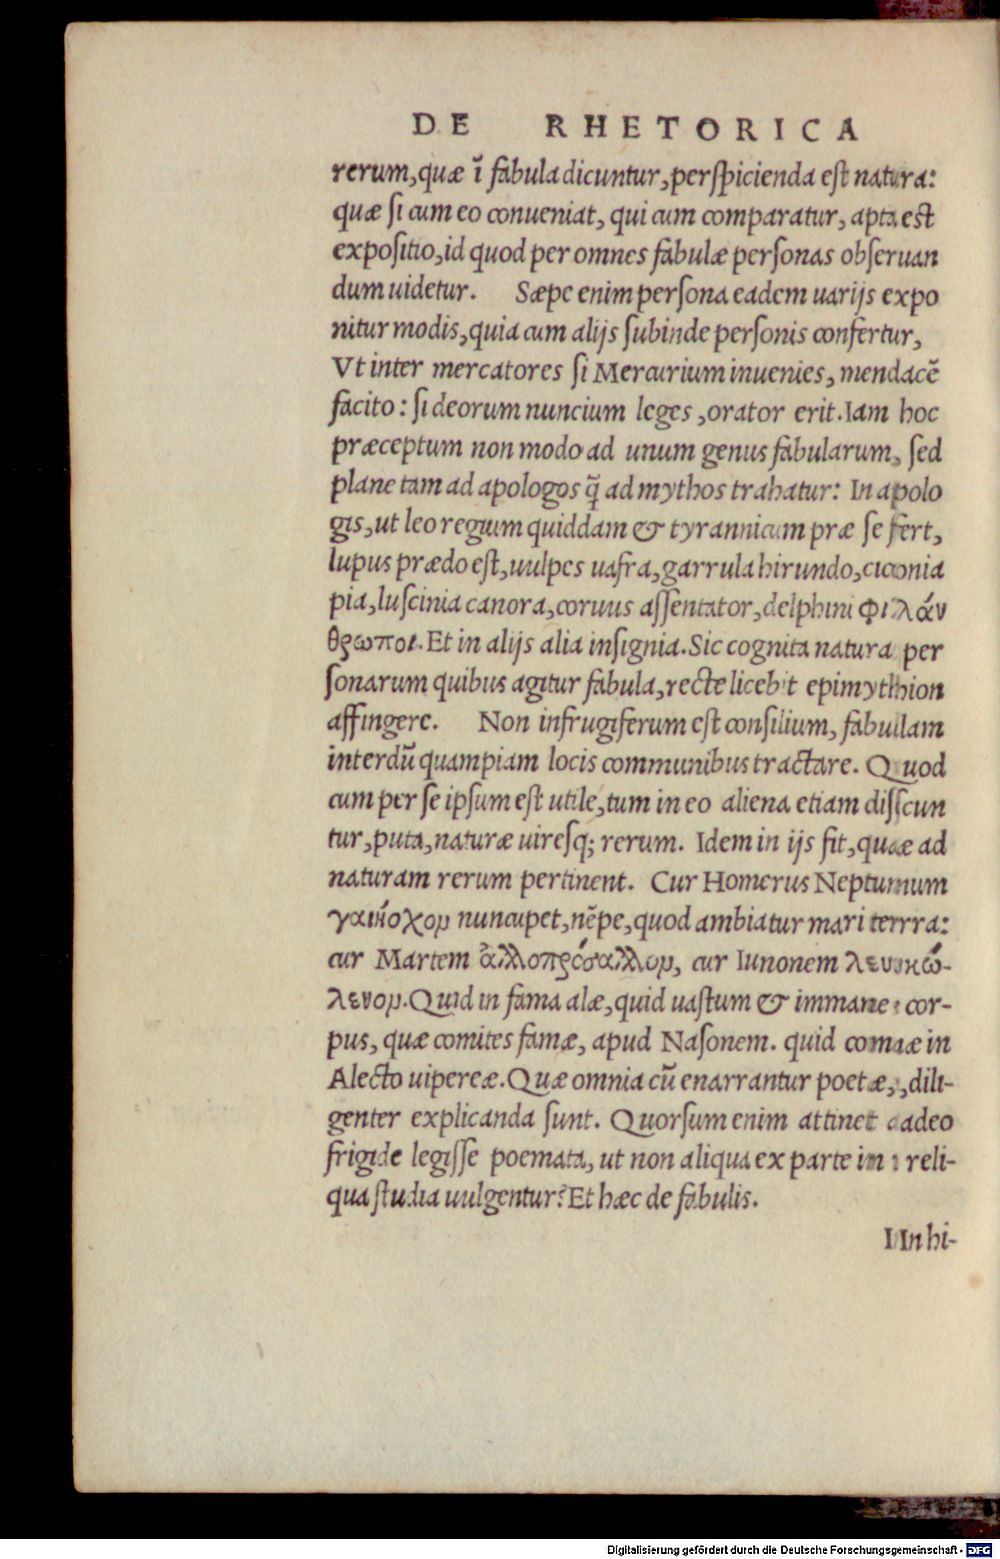 DE RHETORICA
rerum, quæ ĩ fabula dicuntur, perſpicienda eſt natura:
quæ ſi cum eo conueniat, qui cum comparatur, apta eſt
expoſitio, id quod per omnes fabulæ perſonas obſeruan
dum uidetur. Sæpe enim perſona eadem uarijs expo
nitur modis, quia cum alijs ſubinde perſonis confertur,
Vt inter mercatores ſi Mercurium inuenies, mendacẽ
facito: ſi deorum nuncium leges, orator erit. Iam hoc
præceptum non modo ad unum genus fabularum, ſed
plane tam ad apologos q̃ ad mythos trahatur: In apolo
gis, ut leo regium quiddam & tyrannicum præ ſe fert,
lupus prædo eſt, uulpes uafra, garrula hirundo, ciconia
pia, luſcinia canora, coruus aſſentator, delphini φιλάν
θρωποι. Et in alijs alia inſignia. Sic cognita natura per
ſonarum quibus agitur fabula, recte licebit epimythion
affingere. Non infrugiferum eſt conſilium, fabullam
interdũ quampiam locis communibus tractare. Quod
cum per ſe ipſum eſt utile, tum in eo aliena etiam diſſcun
tur, puta, naturæ uiresq; rerum. Idem in ijs fit, quæ ad
naturam rerum pertinent. Cur Homerus Neptunum
γαιήοχον nuncupet, nẽpe, quod ambiatur mari terrra:
cur Martem ἀλλοπρόσαλλον, cur Iunonem λευκώ-
λενον. Quid in fama alæ, quid uaſtum & immane cor-
pus, quæ comites famæ, apud Naſonem. quid comæ in
Alecto uipereæ. Quæ omnia cũ enarrantur poetæ, dili-
genter explicanda ſunt. Quorſum enim attinet adeo
frigide legiſſe poemata, ut non aliqua ex parte in reli-
qua ſtudia uulgentur? Et hæc de fabulis.
In hi-
Digitalisierung gefördert durch die Deutsche Forschungsgemeinschaft - DFG